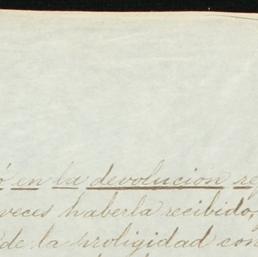 ó en la devolucion re
veces haberla recibido,
de la proligidad con